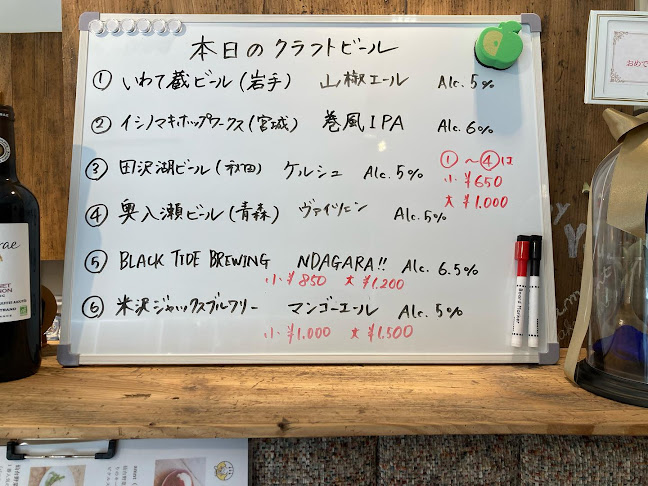 本日のクラフトビール
① いわて蔵ビール(岩手) 山椒エール Alc.5%
② イシノマキホップワークス(宮城) 巻風IPA Alc.6%
③ 田沢湖ビール(秋田) ケルシュ Alc.5%
①~④は
小 ¥650
大 ¥1.000
④ 奥入瀬ビール(青森) ヴァイツェン Alc.5%
⑤ BLACK TIDE BREWING NDAGARA!! Alc.6.5%
小 ¥850 大 ¥1.200
⑥ 米沢ジャックスブルワリー マンゴーエール Alc.5%
小 ¥1.000 大 ¥1.500
Board Marker
おめで